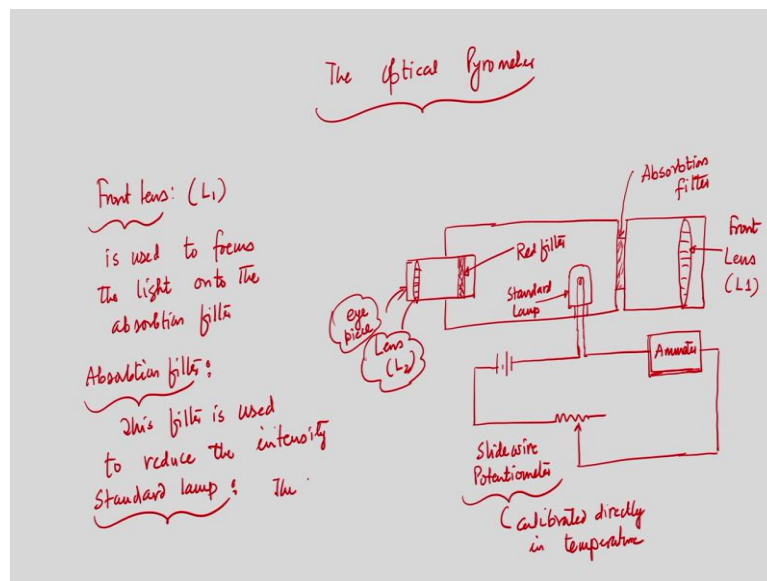 The Optical Pyrometer
Front lens: (L1)
is used to focus
the light onto the
absorbtion filter
Absorbtion filter:
This filter is used
to reduce the intensity
Standard lamp: The
Absorbtion
filter
Front
Lens
(L1)
Red filter
Standard
lamp
eye
piece
Lens
(L2)
Ammeter
Slide wire
Potentiometer
(calibrated directly
in temperature